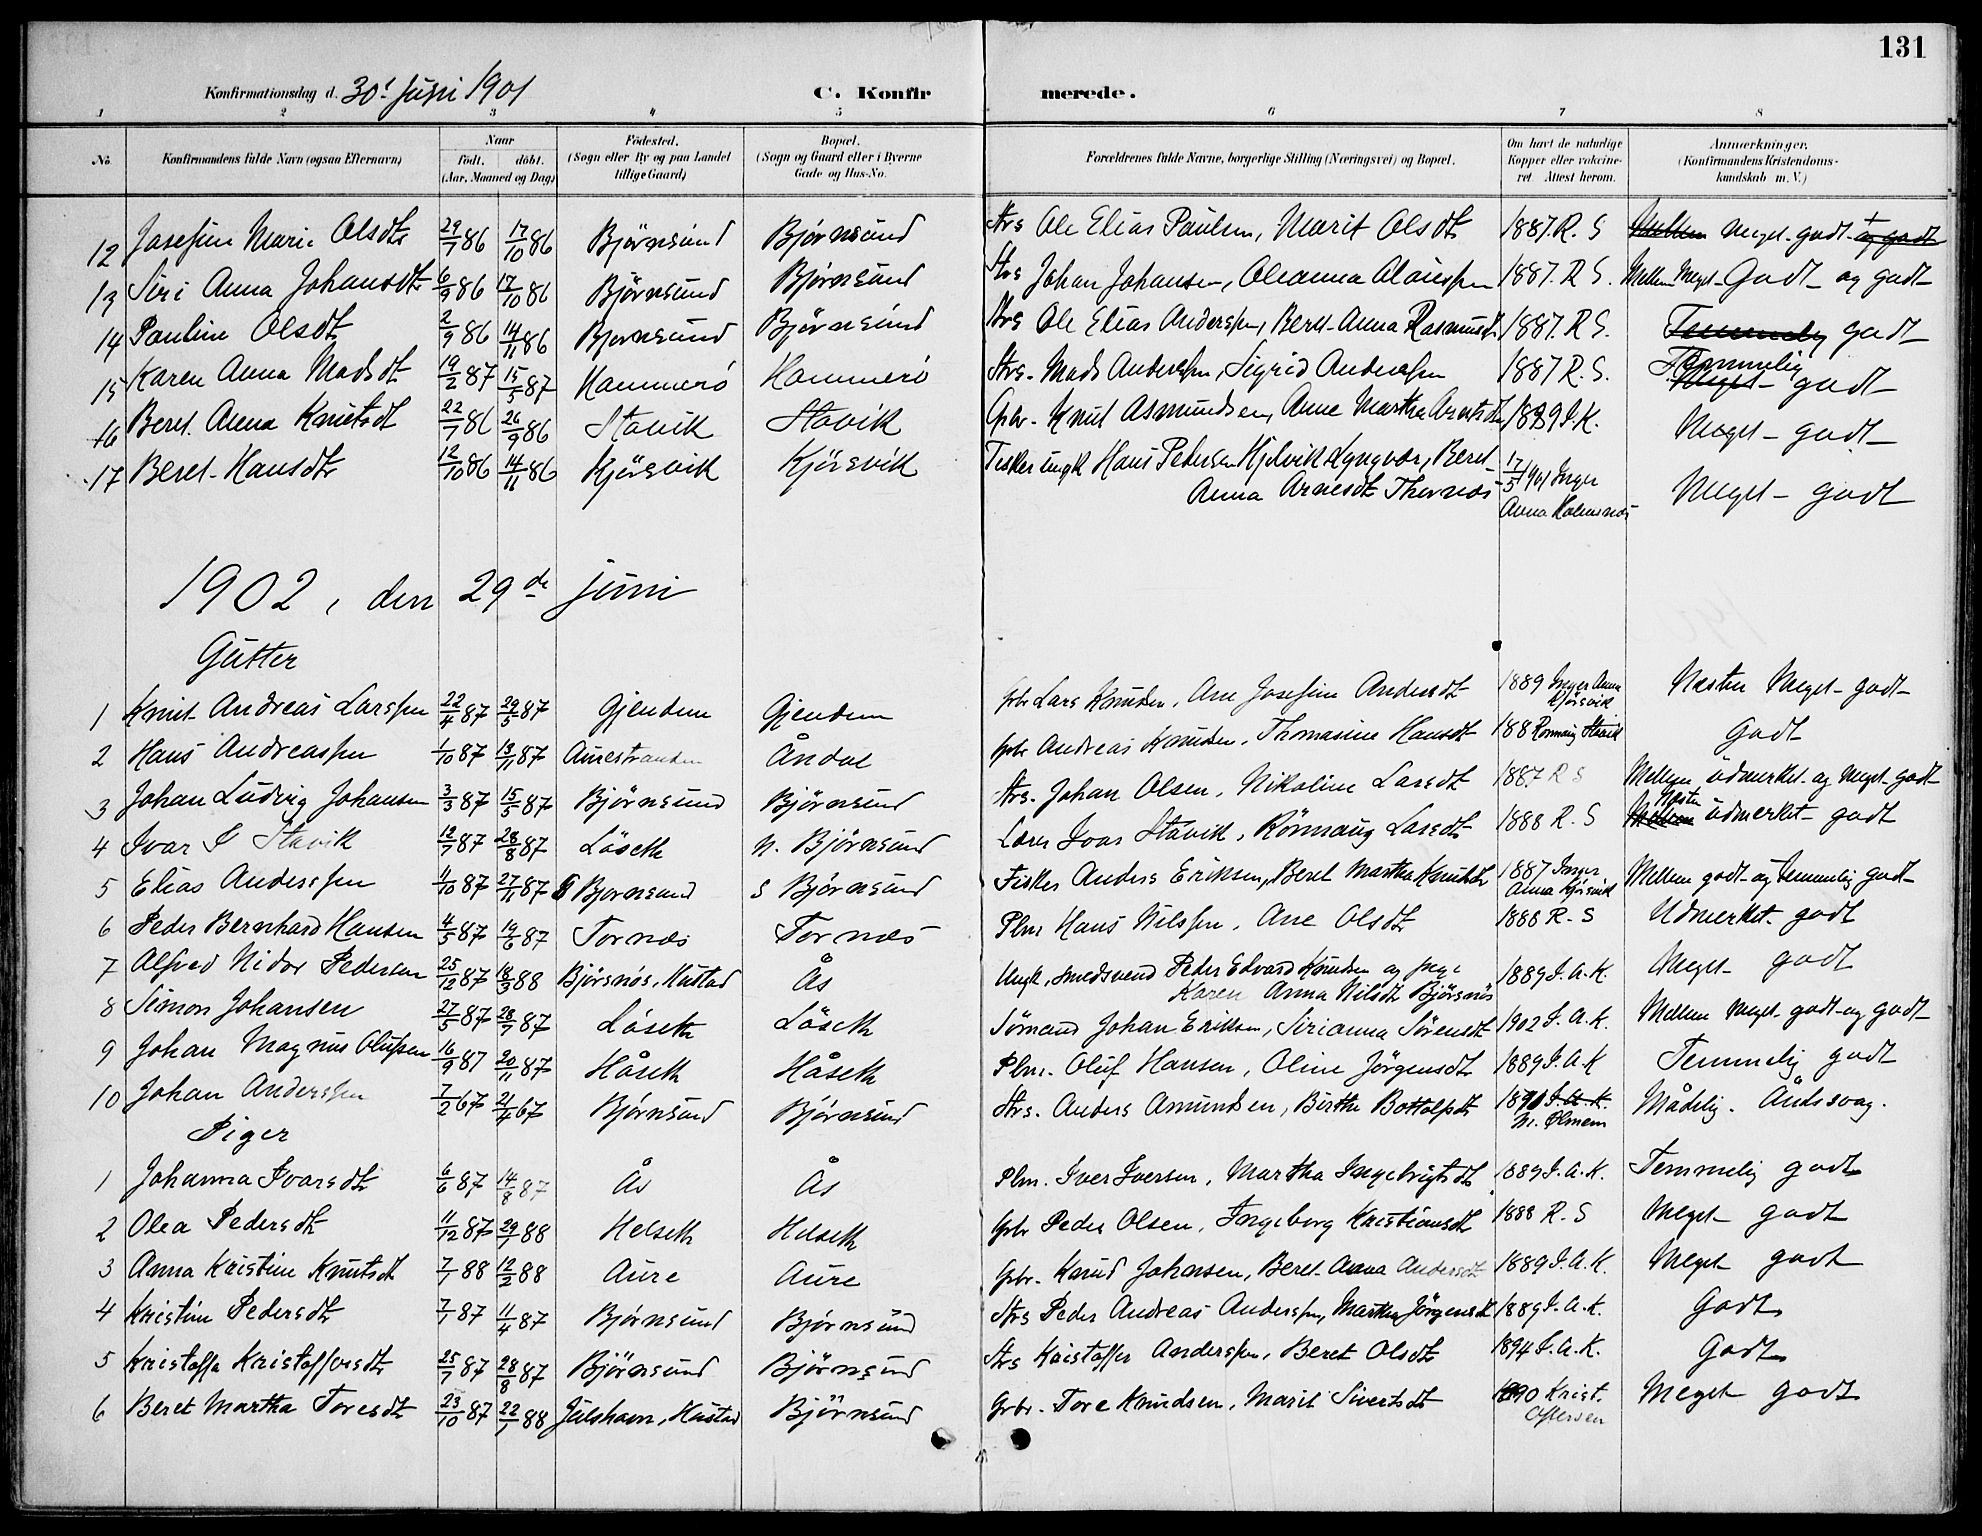 131
Konfirmationsdag d. 30' Juni 1901 C. Konfirmerede.
1 2 3 4 5 6 7 8
No. Konfirmandens fulde Navn (ogsaa Efternavn) Naar födt. döbt. (Aar, Maaned og Dag) Födested. (Sogn eller By og paa Landet tillige Gaard) Bopæl. (Sogn og Gaard eller i Byerne Gade og Hus-No. Forældrenes fulde Navne, borgerlige Stilling (Næringsvei) og Bopæl. Om havt de naturlige Kopper eller vakcineret. Attest herom. Anmærkninger. (Konfirmandens Kristendomskundskab m. V.)
12 Josefine Marie Olsdtr 29/7 86 17/10 86 Björnsund Björnsund Strs Ole Elias Paulsen, Marit Olsdtr 1887. R. S Mellem meget godt + og godt
13 Siri Anna Johansdtr 6/9 86 17/10 86 Björnsund Björnsund Strs Johan Johansen, Oleanna 1887. R S. Mellem Meget Godt og godt
14 Pauline Olsdtr 2/9 86 14/11 86 Bjornsund Björnsund Strs Ole Elias Anderssen, Beret Anna Rasmusdtr 1887. R S. Temmelig godt
15 Karen Anna Madsdt 19/2 87 15/5 87 Hammerö Hammerö Strs. Mads Anderssen, Sigrid Anderssen 1887 R. S. Temmelig Meget godt
16 Beret Anna Knutsdt 22/7 86 26/9 86 Stavik Stavik Gbr. Knut Asmundsen, Anne Martha 1889 I. K. Meget godt
17 Beret Hansdtr 12/10 86 14/11 86 Kjörsvik Kjörsvik Fisker ungk Hans Pedersen Hjelvik Lyngvær, Beret
Anna Arnesdtr Thornæs 17/5 1901 Inger Anna Holmsnæs Meget godt
1902, den 29de juni
Gutter
1 Knut Andreas Larssen 22/4 87 29/5 87 Gjendem Gjendem Gbr Lars Knudsen, Ane Josefine Andersdt 1889 Inger Anna Kjörsvik Næsten Meget godt
2 Hans Andreassen 1/10 87 13/11 87 Aurestranden Åndal Gbr Andreas Knudsen, Thomasine Hansdt 188 Rönnaug Stavik Godt
3 Johan Ludvig Johansen 3/3 87 15/5 87 Björnsund Björnsund Strs. Johan Olsen, Nikoline Larsdt 1887 R S Mellem udmerket og Meget godt
4 Ivar I Stavik 12/7 87 28/8 87 Löseth N. Björnsund Lærer Ivar Stavik, Rönnaug Larsdtr 1888 R. S Næsten Mellem udmerket godt
5 Elias Anderssen 11/10 87 27/11 87 S Bjornsund S Björnsund Fisker Anders Eriksen, Beret Martha Knutsdtr 1887 Inger Anna Kjörsvik Mellem godt og temmelig godt
6 Peder Bernhard Hansen 4/5 87 19/6 87 Tornæs Tornæs Plm Hans Nilssen, Ane Olsdtr 1888 R. S Udmerket godt
7 Alfred Nidar Pedersen 25/12 87 18/3 88 Björsnös, Hustad Ås Ungk, smedsvend Peder Edvard Knudsen og pige
Karen Anna Nilsdtr Björsnös 1889 I. A. K. Meget godt
8 Simon Johansen 27/5 87 28/7 87 Löseth Löseth Sömand Johan Eriksen, Sirianna Sörensdt 1902 I. A. K. Mellem Meget godt og godt
9 Johan Magnus Olufsen 16/9 87 20/11 87 Håseth Håseth Plm. Oluf Hansen, Oline Jörgensdtr 1889 I. A. K Temmelig godt
10 Johan Anderssen 7/2 67 21/4 67 Björnsund Björnsund Strs. Anders Amundsen, Birthe Bottolfsdt 1871 I. A. K. M. Olmem Mådelig. Åndssvag.
Piger
1 Johanna Ivarsdtr 6/6 87 14/8 87 Ås Ås Plm. Iver Iversen, Martha Ingebrigtsdtr 1889 I. A. K. Temmelig godt
2 Olea Pedersdtr 11/12 87 29/1 88 Helseth Helseth Gbr Peder Olsen, Ingeborg Kristiansdt 1888 R. S Meget godt
3 Anna Kristine Knutsdt 7/1 88 12/2 88 Aure Aure Gbr. Knud Johansen, Beret Anna Andersdtr 1889 I. A. K. Meget godt
4 Kristine Pedersdtr 7/1 87 11/4 87 Björnsund Björnsund Strs Peder Andreas Anderssen, Martha Jörgensdt 1889 I. A. K. Godt
5 Kristoffa Kristoffersdtr 25/7 87 28/8 87 Björnsund Björnsund Strs Kristoffer Anderssen, Beret Olsdtr 1894 I. A. K. Godt
6 Beret Martha Toresdtr 23/10 87 22/1 88 Julshavn, Hustad Björnsund Grbr. Tore Knudsen, Marit Sivertsdt 1890 Krist. Oftersen Meget godt